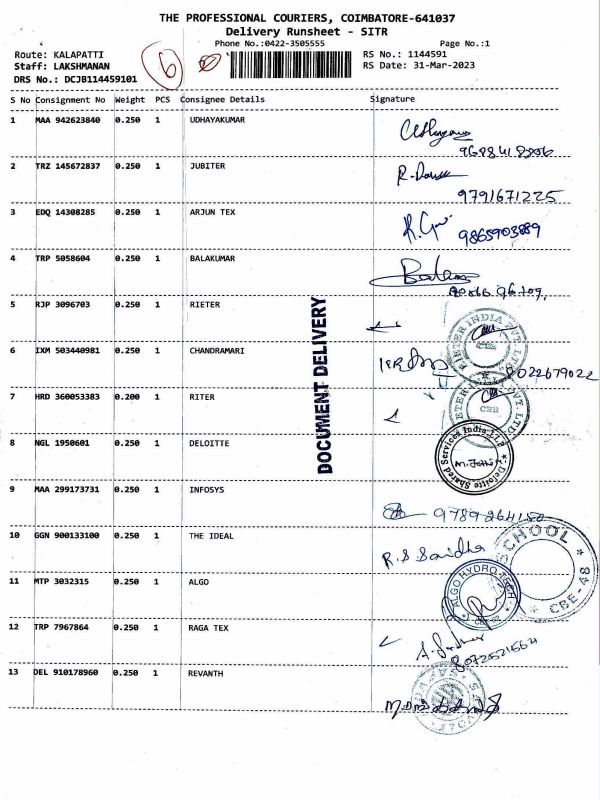 THE PROFESSIONAL COURIERS, COIMBATORE-641037
Delivery Runsheet - SITR
Phone No.:0422-3505555 Page No.:1
Route: KALAPATTI RS No.: 1144591
Staff: LAKSHMANAN RS Date: 31-Mar-2023
DRS No.: DCJB114459101
6
S No Consignment No Weight PCS Consignee Details Signature
1 MAA 942623840 0.250 1 UDHAYAKUMAR
2 TRZ 145672837 0.250 1 JUBITER
9791671225
3 EDQ 14308285 0.250 1 ARJUN TEX
9865903889
4 TRP 5058604 0.250 1 BALAKUMAR
5 RJP 3096703 0.250 1 RIETER
RIETER INDIA PVT LTD
6 IXM 503440981 0.250 1 CHANDRAMARI
8022679022
7 HRD 360053383 0.200 1 RITER
CBE
DOCUMENT DELIVERY
8 NGL 1950601 0.250 1 DELOITTE
Deloitte Shared Services India LLP
9 MAA 299173731 0.250 1 INFOSYS
10 GGN 900133100 0.250 1 THE IDEAL
R.S Saridha
SCHOOL
CBE-48
11 MTP 3032315 0.250 1 ALGO
ALGO HYDRO TECH
12 TRP 7967864 0.250 1 RAGA TEX
13 DEL 910178960 0.250 1 REVANTH